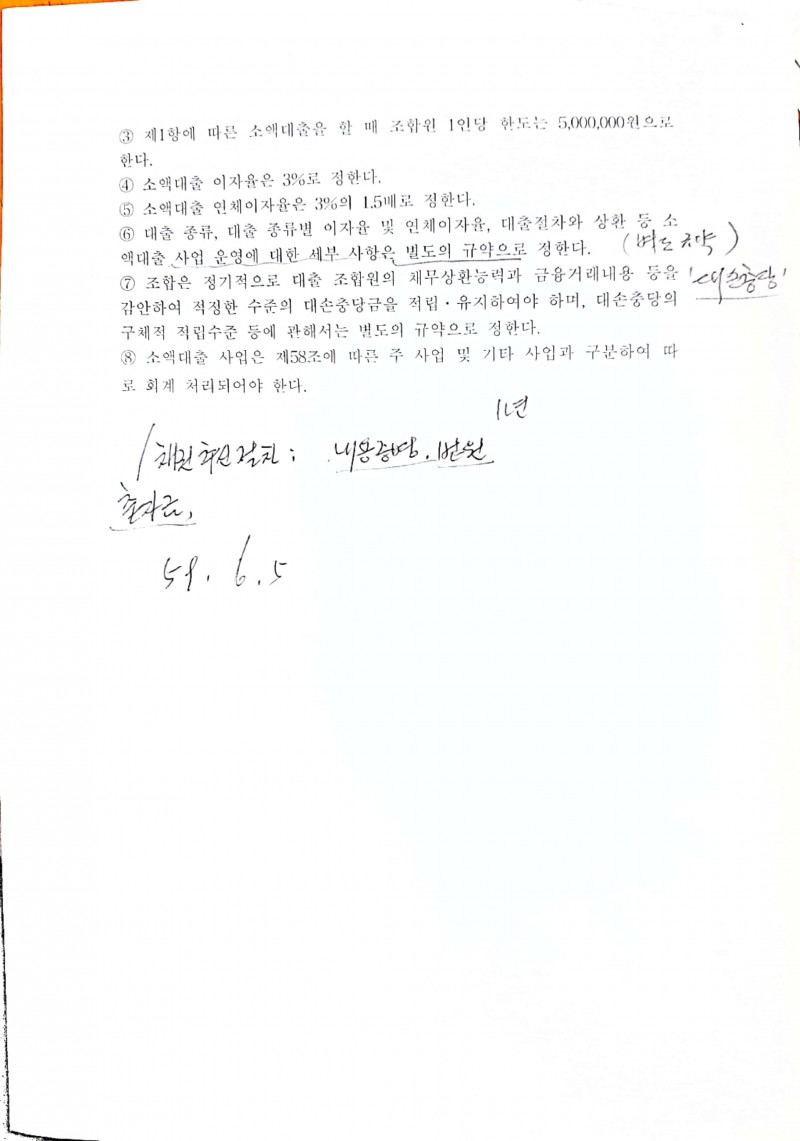 ③ 제1항에 따른 소액대출을 할 때 조합원 1인당 한도는 5,000,000원으로
한다.
④ 소액대출 이자율은 3%로 정한다.
⑤ 소액대출 연체이자율은 3%의 1.5배로 정한다.
⑥ 대출 종류, 대출 종류별 이자율 및 인체이자율, 대출절차와 상환 등 소
액대출 사업 운영에 대한 세부 사항은 별도의 규약으로 정한다. (별도 규약)
⑦ 조합은 정기적으로 대출 조합원의 채무상환능력과 금융거래내용 등을 '대손충당'
감안하여 적정한 수준의 대손충당금을 적립·유지하여야 하며, 대손충당의
구체적 적립수준 등에 관해서는 별도의 규약으로 정한다.
⑧ 소액대출 사업은 제58조에 따른 주 사업 및 기타 사업과 구분하여 따
로 회계 처리되어야 한다.
1년
절차; 내용증명. 법원
출자금,
59. 6. 5